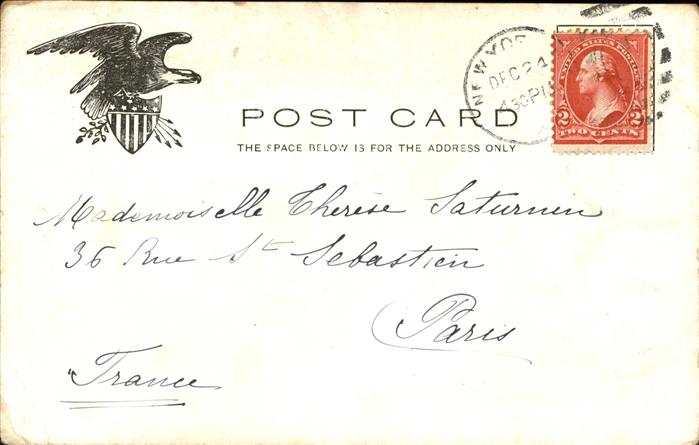 NEW YOR
DEC 24
430P
POST CARD
THE SPACE BELOW IS FOR THE ADDRESS ONLY
UNITED STATES POSTAGE
2 2
TWO CENTS
Mademoiselle Thérèse Saturnin
36 Rue St Sebastien
Paris
France